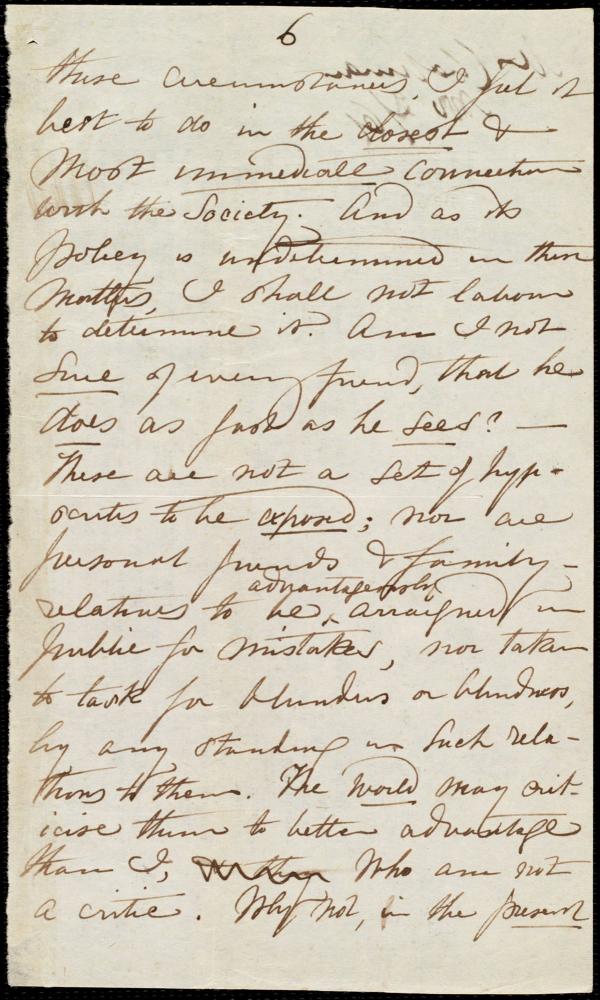 6
these circumstances, I feel it
best to do in the closest &
most immediate connection
with the Society. And as its
policy is undetermined in these
matters, I shall not labour
to determine it. Am I not
sure of every friend, that he
does as fast as he sees? —
These are not a set of hyp-
ocrites to be exposed; nor are
personal friends & family-
advantageously
relatives to be, arraigned in
public for mistakes, nor taken
to task for blunders or blindness,
by any standing in such rela-
tions to them. The world may crit-
icise them to better advantage
than I, who am not
a critic. Why not, in the present